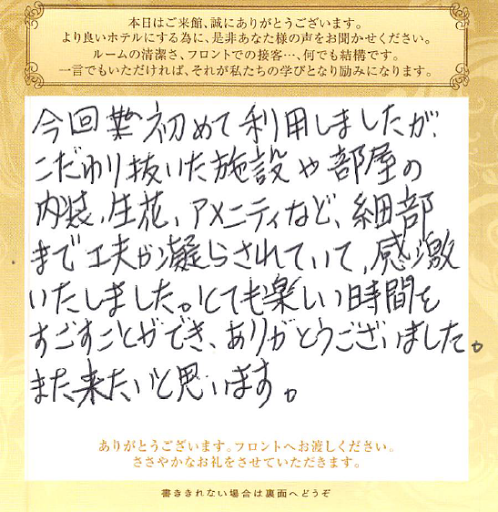 本日はご来館、誠にありがとうございます。
より良いホテルにする為に、是非あなた様の声をお聞かせください。
ルームの清潔さ、フロントでの接客…、何でも結構です。
一言でもいただければ、それが私たちの学びとなり励みになります。
今回初めて利用しましたが、
こだわり抜いた施設や部屋の
内装、生花、アメニティなど、細部
まで工夫が凝らされていて、感激
いたしました。とても楽しい時間を
すごすことができ、ありがとうございました。
また来たいと思います。
ありがとうございます。フロントへお渡しください。
ささやかなお礼をさせていただきます。
書ききれない場合は裏面へどうぞ